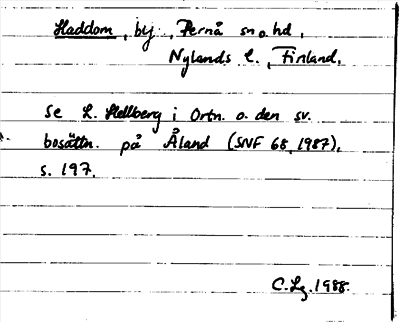 Haddom, by, Pernå sn o. hd,
Nylands l., Finland.
Se L. Hellberg i Ortn. o. den sv.
bosättn. på Åland (SNF 68, 1987),
s. 197.
C. Lg. 1988.